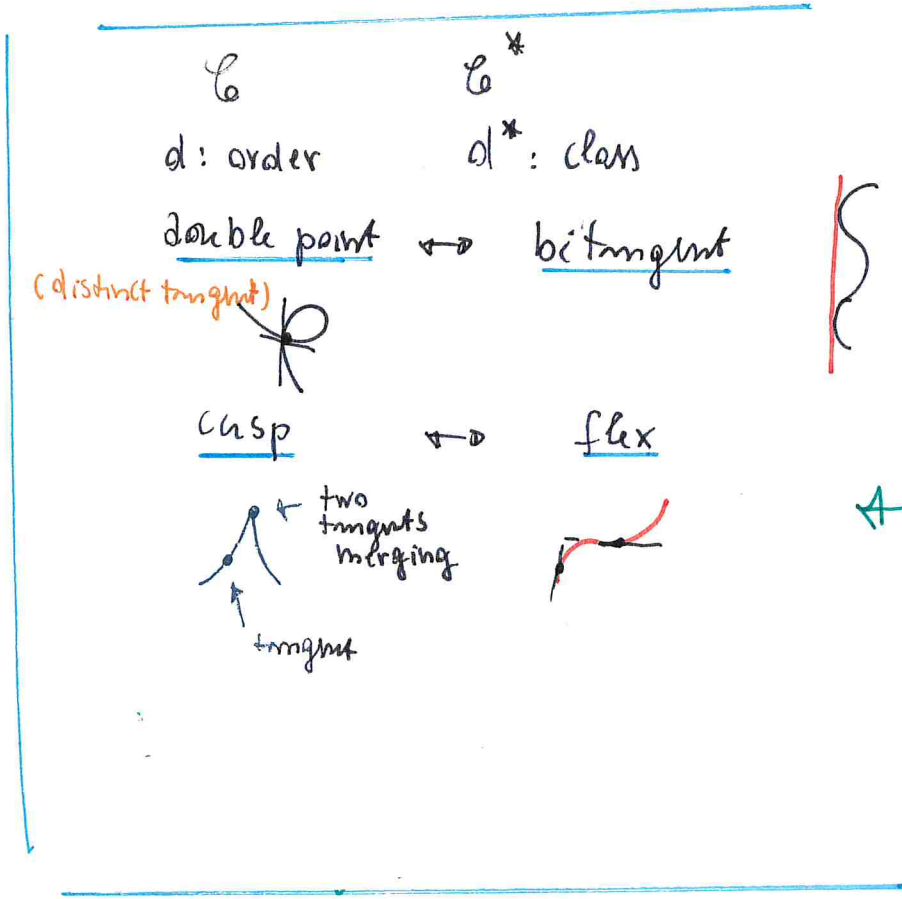 C C*
d: order d*: class
double point ↔ bitangent
(distinct tangent)
cusp ↔ flex
← two
tangents
merging
tangent